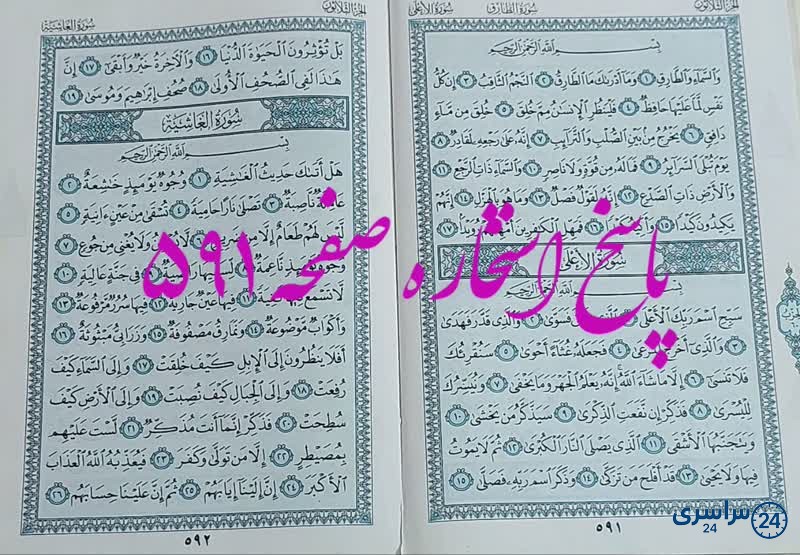 الجزء الثلاثون
سورة الطارق
سورة الأعلى
بِسْمِ اللَّهِ الرَّحْمَٰنِ الرَّحِيمِ
وَالسَّمَاءِ وَالطَّارِقِ ١ وَمَا أَدْرَاكَ مَا الطَّارِقُ ٢ النَّجْمُ الثَّاقِبُ ٣ إِنْ كُلُّ
نَفْسٍ لَمَّا عَلَيْهَا حَافِظٌ ٤ فَلْيَنْظُرِ الْإِنْسَانُ مِمَّ خُلِقَ ٥ خُلِقَ مِنْ مَاءٍ
دَافِقٍ ٦ يَخْرُجُ مِنْ بَيْنِ الصُّلْبِ وَالتَّرَائِبِ ٧ إِنَّهُ عَلَى رَجْعِهِ لَقَادِرٌ ٨
يَوْمَ تُبْلَى السَّرَائِرُ ٩ فَمَا لَهُ مِنْ قُوَّةٍ وَلَا نَاصِرٍ ١٠ وَالسَّمَاءِ ذَاتِ الرَّجْعِ ١١
وَالْأَرْضِ ذَاتِ الصَّدْعِ ١٢ إِنَّهُ لَقَوْلٌ فَصْلٌ ١٣ وَمَا هُوَ بِالْهَزْلِ ١٤ إِنَّهُمْ
يَكِيدُونَ كَيْدًا ١٥ وَأَكِيدُ كَيْدًا ١٦ فَمَهِّلِ الْكَافِرِينَ أَمْهِلْهُمْ رُوَيْدًا ١٧
سُورَةُ الأَعْلَى
بِسْمِ اللَّهِ الرَّحْمَٰنِ الرَّحِيمِ
سَبِّحِ اسْمَ رَبِّكَ الْأَعْلَى ١ الَّذِي خَلَقَ فَسَوَّى ٢ وَالَّذِي قَدَّرَ فَهَدَى
٣ وَالَّذِي أَخْرَجَ الْمَرْعَى ٤ فَجَعَلَهُ غُثَاءً أَحْوَى ٥ سَنُقْرِئُكَ
فَلَا تَنْسَى ٦ إِلَّا مَا شَاءَ اللَّهُ إِنَّهُ يَعْلَمُ الْجَهْرَ وَمَا يَخْفَى ٧ وَنُيَسِّرُكَ
لِلْيُسْرَى ٨ فَذَكِّرْ إِنْ نَفَعَتِ الذِّكْرَى ٩ سَيَذَّكَّرُ مَنْ يَخْشَى ١٠
وَيَتَجَنَّبُهَا الْأَشْقَى ١١ الَّذِي يَصْلَى النَّارَ الْكُبْرَى ١٢ ثُمَّ لَا يَمُوتُ
فِيهَا وَلَا يَحْيَى ١٣ قَدْ أَفْلَحَ مَنْ تَزَكَّى ١٤ وَذَكَرَ اسْمَ رَبِّهِ فَصَلَّى ١٥
٥٩١
الجزء الثلاثون
سورة الغاشية
بَلْ تُؤْثِرُونَ الْحَيَاةَ الدُّنْيَا ١٦ وَالْآخِرَةُ خَيْرٌ وَأَبْقَى ١٧ إِنَّ
هَذَا لَفِي الصُّحُفِ الْأُولَى ١٨ صُحُفِ إِبْرَاهِيمَ وَمُوسَى ١٩
سُورَةُ الغَاشِيَةِ
بِسْمِ اللَّهِ الرَّحْمَٰنِ الرَّحِيمِ
هَلْ أَتَاكَ حَدِيثُ الْغَاشِيَةِ ١ وُجُوهٌ يَوْمَئِذٍ خَاشِعَةٌ ٢
عَامِلَةٌ نَاصِبَةٌ ٣ تَصْلَى نَارًا حَامِيَةً ٤ تُسْقَى مِنْ عَيْنٍ آنِيَةٍ ٥
لَيْسَ لَهُمْ طَعَامٌ إِلَّا مِنْ ضَرِيعٍ ٦ لَا يُسْمِنُ وَلَا يُغْنِي مِنْ جُوعٍ ٧
وُجُوهٌ يَوْمَئِذٍ نَاعِمَةٌ ٨ لِسَعْيِهَا رَاضِيَةٌ ٩ فِي جَنَّةٍ عَالِيَةٍ ١٠
لَا تَسْمَعُ فِيهَا لَاغِيَةً ١١ فِيهَا عَيْنٌ جَارِيَةٌ ١٢ فِيهَا سُرُرٌ مَرْفُوعَةٌ ١٣
وَأَكْوَابٌ مَوْضُوعَةٌ ١٤ وَنَمَارِقُ مَصْفُوفَةٌ ١٥ وَزَرَابِيُّ مَبْثُوثَةٌ ١٦
أَفَلَا يَنْظُرُونَ إِلَى الْإِبِلِ كَيْفَ خُلِقَتْ ١٧ وَإِلَى السَّمَاءِ كَيْفَ
رُفِعَتْ ١٨ وَإِلَى الْجِبَالِ كَيْفَ نُصِبَتْ ١٩ وَإِلَى الْأَرْضِ كَيْفَ
سُطِحَتْ ٢٠ فَذَكِّرْ إِنَّمَا أَنْتَ مُذَكِّرٌ ٢١ لَسْتَ عَلَيْهِمْ
بِمُصَيْطِرٍ ٢٢ إِلَّا مَنْ تَوَلَّى وَكَفَرَ ٢٣ فَيُعَذِّبُهُ اللَّهُ الْعَذَابَ
الْأَكْبَرَ ٢٤ إِنَّ إِلَيْنَا إِيَابَهُمْ ٢٥ ثُمَّ إِنَّ عَلَيْنَا حِسَابَهُمْ ٢٦
٥٩٢
پاسخ استخاره صفحه ۵۹۱
سراسری 24
24